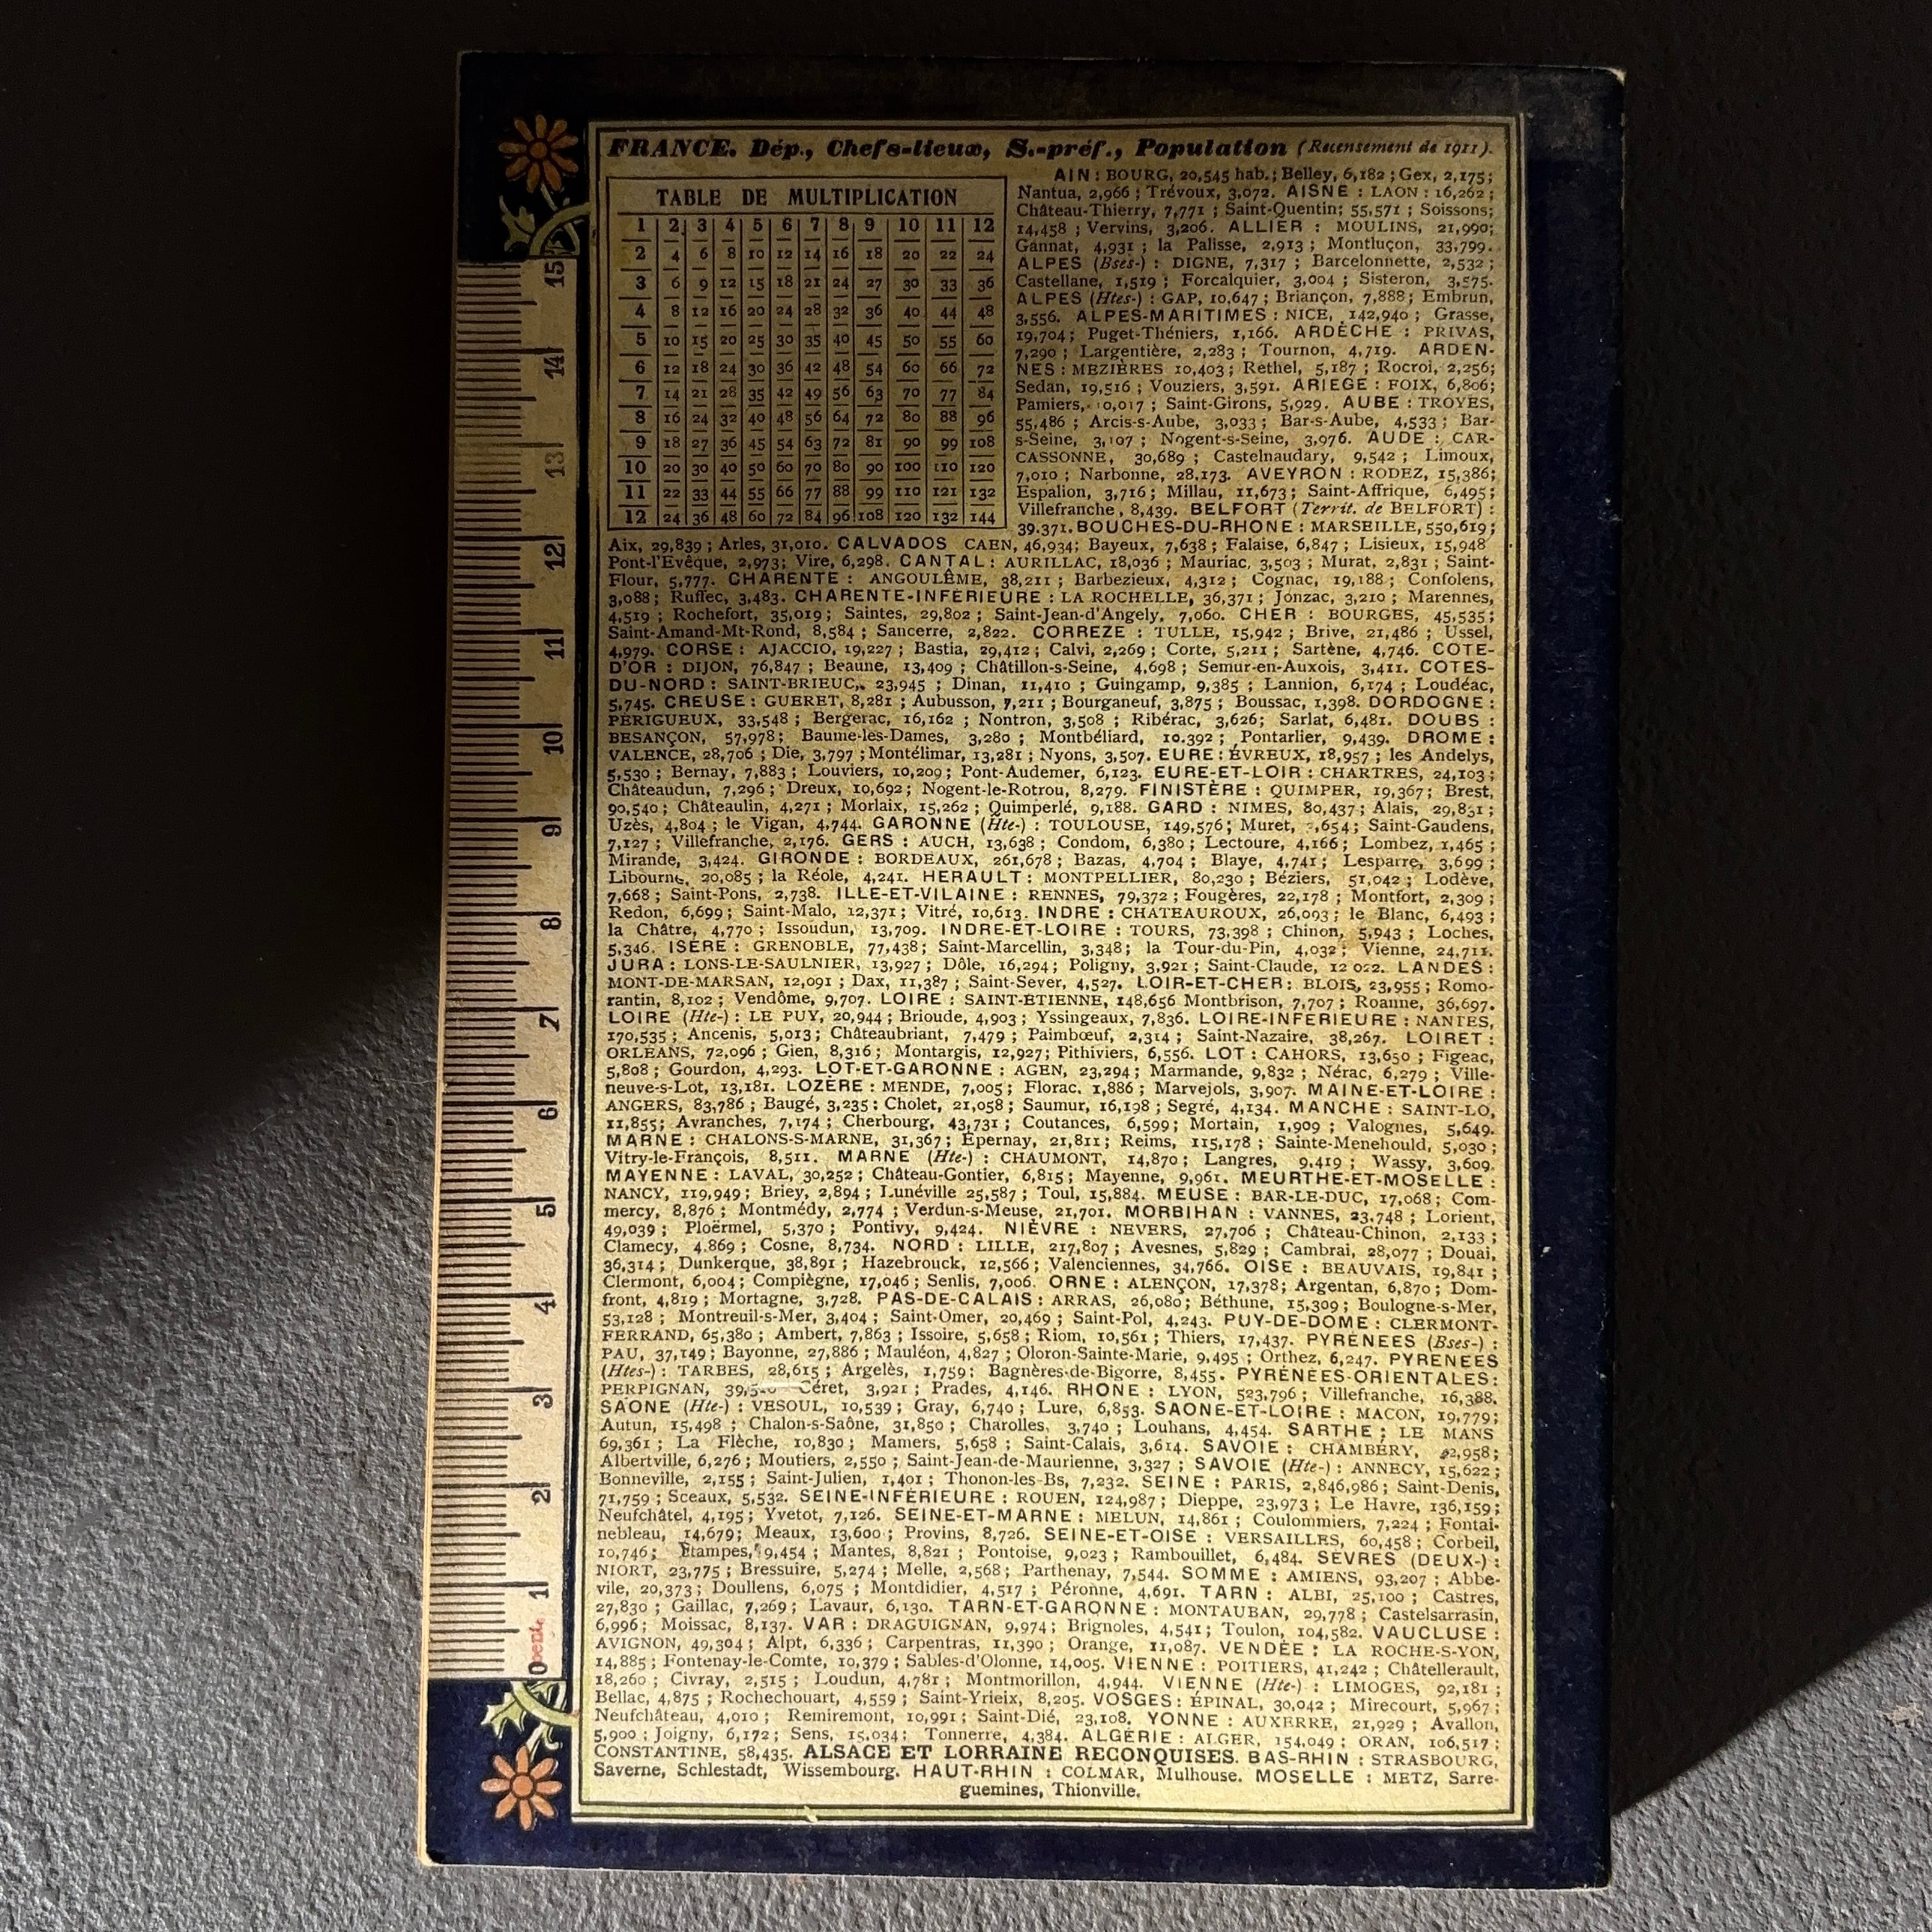 FRANCE. Dép., Chefs-lieux, S.-préf., Population (Recensement de 1911).
TABLE DE MULTIPLICATION
1 2 3 4 5 6 7 8 9 10 11 12
2 4 6 8 10 12 14 16 18 20 22 24
3 6 9 12 15 18 21 24 27 30 33 36
4 8 12 16 20 24 28 32 36 40 44 48
5 10 15 20 25 30 35 40 45 50 55 60
6 12 18 24 30 36 42 48 54 60 66 72
7 14 21 28 35 42 49 56 63 70 77 84
8 16 24 32 40 48 56 64 72 80 88 96
9 18 27 36 45 54 63 72 81 90 99 108
10 20 30 40 50 60 70 80 90 100 110 120
11 22 33 44 55 66 77 88 99 110 121 132
12 24 36 48 60 72 84 96 108 120 132 144
AIN : BOURG, 20,545 hab.; Belley, 6,182 ; Gex, 2,175;
Nantua, 2,966 ; Trévoux, 3,072. AISNE : LAON : 16,262 ;
Château-Thierry, 7,771 ; Saint-Quentin; 55,571 ; Soissons;
14,458 ; Vervins, 3,206. ALLIER : MOULINS, 21,990;
Gannat, 4,931 ; la Palisse, 2,913 ; Montluçon, 33,799.
ALPES (Bses-) : DIGNE, 7,317 ; Barcelonnette, 2,532 ;
Castellane, 1,519 ; Forcalquier, 3,004 ; Sisteron, 3,575.
ALPES (Htes-) : GAP, 10,647 ; Briançon, 7,888; Embrun,
3,556. ALPES-MARITIMES : NICE, 142,940 ; Grasse,
19,704; Puget-Théniers, 1,166. ARDÈCHE : PRIVAS,
7,290 ; Largentière, 2,283 ; Tournon, 4,719. ARDEN-
NES : MEZIÈRES 10,403; Rethel, 5,187 ; Rocroi, 2,256;
Sedan, 19,516 ; Vouziers, 3,591. ARIEGE : FOIX, 6,806;
Pamiers, 0,017 ; Saint-Girons, 5,929. AUBE : TROYES,
55,486 ; Arcis-s-Aube, 3,033 ; Bar-s-Aube, 4,533 ; Bar-
s-Seine, 3,107 ; Nogent-s-Seine, 3,976. AUDE : CAR-
CASSONNE, 30,689 ; Castelnaudary, 9,542 ; Limoux,
7,010 ; Narbonne, 28,173. AVEYRON : RODEZ, 15,386;
Espalion, 3,716 ; Millau, 11,673; Saint-Affrique, 6,495;
Villefranche, 8,439. BELFORT (Territ. de BELFORT) :
39.371. BOUCHES-DU-RHONE : MARSEILLE, 550,619 ;
Aix, 29,839 ; Arles, 31,010. CALVADOS CAEN, 46,934; Bayeux, 7,638 ; Falaise, 6,847 ; Lisieux, 15,948
Pont-l'Evêque, 2,973; Vire, 6,298. CANTAL : AURILLAC, 18,036 ; Mauriac, 3,503 ; Murat, 2,831 ; Saint-
Flour, 5,777. CHARENTE : ANGOULÊME, 38,211 ; Barbezieux, 4,312 ; Cognac, 19,188 ; Confolens,
3,088; Ruffec, 3,483. CHARENTE-INFERIEURE : LA ROCHELLE, 36,371 ; Jonzac, 3,210 ; Marennes,
4,519 ; Rochefort, 35,019 ; Saintes, 29,802 ; Saint-Jean-d'Angely, 7,060. CHER : BOURGES, 45,535;
Saint-Amand-Mt-Rond, 8,584 ; Sancerre, 2,822. CORREZE : TULLE, 15,942 ; Brive, 21,486 ; Ussel,
4,979. CORSE : AJACCIO, 19,227 ; Bastia, 29,412 ; Calvi, 2,269 ; Corte, 5,211 ; Sartène, 4,746. COTE-
D'OR : DIJON, 76,847 ; Beaune, 13,409 ; Châtillon-s-Seine, 4,698 ; Semur-en-Auxois, 3,411. COTES-
DU-NORD : SAINT-BRIEUC, 23,945 ; Dinan, 11,410 ; Guingamp, 9,385 ; Lannion, 6,174 ; Loudéac,
5,745. CREUSE : GUERET, 8,281 ; Aubusson, 7,211 ; Bourganeuf, 3,875 ; Boussac, 1,398. DORDOGNE :
PERIGUEUX, 33,548 ; Bergerac, 16,162 ; Nontron, 3,508 ; Ribérac, 3,626; Sarlat, 6,481. DOUBS :
BESANÇON, 57,978; Baume-les-Dames, 3,280 ; Montbéliard, 10.392 ; Pontarlier, 9,439. DROME :
VALENCE, 28,706 ; Die, 3,797 ; Montélimar, 13,281 ; Nyons, 3,507. EURE : ÉVREUX, 18,957 ; les Andelys,
5,530 ; Bernay, 7,883 ; Louviers, 10,209 ; Pont-Audemer, 6,123. EURE-ET-LOIR : CHARTRES, 24,103 ;
Châteaudun, 7,296 ; Dreux, 10,692 ; Nogent-le-Rotrou, 8,279. FINISTÈRE : QUIMPER, 19,367; Brest,
90,540 ; Châteaulin, 4,271 ; Morlaix, 15,262 ; Quimperlé, 9,188. GARD : NIMES, 80,437 ; Alais, 29,831 ;
Uzès, 4,804 ; le Vigan, 4,744. GARONNE (Hte-) : TOULOUSE, 149,576; Muret, ,654; Saint-Gaudens,
7,127 ; Villefranche, 2,176. GERS : AUCH, 13,638 ; Condom, 6,380 ; Lectoure, 4,166 ; Lombez, 1,465 ;
Mirande, 3,424. GIRONDE : BORDEAUX, 261,678 ; Bazas, 4,704 ; Blaye, 4,741 ; Lesparre, 3,699 ;
Libourne, 20,085 ; la Réole, 4,241. HERAULT : MONTPELLIER, 80,230 ; Béziers, 51,042 ; Lodève,
7,668 ; Saint-Pons, 2,738. ILLE-ET-VILAINE : RENNES, 79,372 ; Fougères, 22,178 ; Montfort, 2,309 ;
Redon, 6,699 ; Saint-Malo, 12,371 ; Vitré, 10,613. INDRE : CHATEAUROUX, 26,093 ; le Blanc, 6,493 ;
la Châtre, 4,770 ; Issoudun, 13,709. INDRE-ET-LOIRE : TOURS, 73,398 ; Chinon, 5,943 ; Loches,
5,346. ISÈRE : GRENOBLE, 77,438; Saint-Marcellin, 3,348; la Tour-du-Pin, 4,032 ; Vienne, 24,711.
JURA : LONS-LE-SAULNIER, 13,927 ; Dôle, 16,294 ; Poligny, 3,921 ; Saint-Claude, 12 022. LANDES :
MONT-DE-MARSAN, 12,091 ; Dax, 11,387 ; Saint-Sever, 4,527. LOIR-ET-CHER : BLOIS, 23,955 ; Romo-
rantin, 8,102 ; Vendôme, 9,707. LOIRE : SAINT-ETIENNE, 148,656 Montbrison, 7,707 ; Roanne, 36,697.
LOIRE (Hte-) : LE PUY, 20,944 ; Brioude, 4,903 ; Yssingeaux, 7,836. LOIRE-INFERIEURE : NANTES,
170,535 ; Ancenis, 5,013 ; Châteaubriant, 7,479 ; Paimbœuf, 2,314 ; Saint-Nazaire, 38,267. LOIRET :
ORLÉANS, 72,096 ; Gien, 8,316 ; Montargis, 12,927; Pithiviers, 6,556. LOT : CAHORS, 13,650 ; Figeac,
5,808 ; Gourdon, 4,293. LOT-ET-GARONNE : AGEN, 23,294 ; Marmande, 9,832 ; Nérac, 6,279 ; Ville-
neuve-s-Lot, 13,181. LOZÈRE : MENDE, 7,005 ; Florac, 1,886 ; Marvejols, 3,907. MAINE-ET-LOIRE :
ANGERS, 83,786 ; Baugé, 3,235 : Cholet, 21,058 ; Saumur, 16,198 ; Segré, 4,134. MANCHE : SAINT-LO,
11,855; Avranches, 7,174 ; Cherbourg, 43,731 ; Coutances, 6,599 ; Mortain, 1,909 ; Valognes, 5,649.
MARNE : CHALONS-S-MARNE, 31,367 ; Épernay, 21,811 ; Reims, 115,178 ; Sainte-Menehould, 5,030 ;
Vitry-le-François, 8,511. MARNE (Hte-) : CHAUMONT, 14,870 ; Langres, 9,419 ; Wassy, 3,609.
MAYENNE : LAVAL, 30,252 ; Château-Gontier, 6,815 ; Mayenne, 9,961. MEURTHE-ET-MOSELLE :
NANCY, 119,949 ; Briey, 2,894 ; Lunéville 25,587 ; Toul, 15,884. MEUSE : BAR-LE-DUC, 17,068 ; Com-
mercy, 8,876 ; Montmédy, 2,774 ; Verdun-s-Meuse, 21,701. MORBIHAN : VANNES, 23,748 ; Lorient,
49,039 ; Ploërmel, 5,370 ; Pontivy, 9,424. NIÈVRE : NEVERS, 27,706 ; Château-Chinon, 2,133 ;
Clamecy, 4.869 ; Cosne, 8,734. NORD : LILLE, 217,807 ; Avesnes, 5,829 ; Cambrai, 28,077 ; Douai,
36,314 ; Dunkerque, 38,891 ; Hazebrouck, 12,566 ; Valenciennes, 34,766. OISE : BEAUVAIS, 19,841 ;
Clermont, 6,004 ; Compiègne, 17,046 ; Senlis, 7,006. ORNE : ALENÇON, 17,378; Argentan, 6,870 ; Dom-
front, 4,819 ; Mortagne, 3,728. PAS-DE-CALAIS : ARRAS, 26,080 ; Béthune, 15,309 ; Boulogne-s-Mer,
53,128 ; Montreuil-s-Mer, 3,404 ; Saint-Omer, 20,469 ; Saint-Pol, 4,243. PUY-DE-DOME : CLERMONT-
FERRAND, 65,380 ; Ambert, 7,863 ; Issoire, 5,658 ; Riom, 10,561 ; Thiers, 17,437. PYRENEES (Bses-) :
PAU, 37,149 ; Bayonne, 27,886 ; Mauléon, 4,827 ; Oloron-Sainte-Marie, 9,495 ; Orthez, 6,247. PYRENEES
(Htes-) : TARBES, 28,615 ; Argelès, 1,759 ; Bagnères-de-Bigorre, 8,455. PYRÉNÉES-ORIENTALES :
PERPIGNAN, Céret, 3,921 ; Prades, 4,146. RHONE : LYON, 523,796 ; Villefranche, 16,388.
SAONE (Hte-) : VESOUL, 10,539 ; Gray, 6,740 ; Lure, 6,853. SAONE-ET-LOIRE : MACON, 19,779;
Autun, 15,498 ; Chalon-s-Saône, 31,850 ; Charolles, 3,740 ; Louhans, 4,454. SARTHE : LE MANS
69,361 ; La Flèche, 10,830 ; Mamers, 5,658 ; Saint-Calais, 3,614. SAVOIE : CHAMBÉRY, 22,958;
Albertville, 6,276 ; Moutiers, 2,550 ; Saint-Jean-de-Maurienne, 3,327 ; SAVOIE (Hte-) : ANNECY, 15,622 ;
Bonneville, 2,155 ; Saint-Julien, 1,401 ; Thonon-les-Bs, 7,232. SEINE : PARIS, 2,846,986 ; Saint-Denis,
71,759 ; Sceaux, 5,532. SEINE-INFÉRIEURE : ROUEN, 124,987 ; Dieppe, 23,973 ; Le Havre, 136,159 ;
Neufchâtel, 4,195 ; Yvetot, 7,126. SEINE-ET-MARNE : MELUN, 14,861 ; Coulommiers, 7,224 ; Fontai-
nebleau, 14,679; Meaux, 13,600 ; Provins, 8,726. SEINE-ET-OISE : VERSAILLES, 60,458 ; Corbeil,
10,746 ; Étampes, 9,454 ; Mantes, 8,821 ; Pontoise, 9,023 ; Rambouillet, 6,484. SEVRES (DEUX-) :
NIORT, 23,775 ; Bressuire, 5,274 ; Melle, 2,568 ; Parthenay, 7,544. SOMME : AMIENS, 93,207 ; Abbe-
vile, 20,373 ; Doullens, 6,075 ; Montdidier, 4,517 ; Péronne, 4,691. TARN : ALBI, 25,100 ; Castres,
27,830 ; Gaillac, 7,269 ; Lavaur, 6,130. TARN-ET-GARONNE : MONTAUBAN, 29,778 ; Castelsarrasin,
6,996 ; Moissac, 8,137. VAR : DRAGUIGNAN, 9,974 ; Brignoles, 4,541 ; Toulon, 104,582. VAUCLUSE :
AVIGNON, 49,304 ; Alpt, 6,336 ; Carpentras, 11,390 ; Orange, 11,087. VENDÉE : LA ROCHE-S-YON,
14,885 ; Fontenay-le-Comte, 10,379 ; Sables-d'Olonne, 14,005. VIENNE : POITIERS, 41,242 ; Châtellerault,
18,260 ; Civray, 2,515 ; Loudun, 4,781 ; Montmorillon, 4,944. VIENNE (Hte-) : LIMOGES, 92,181 ;
Bellac, 4,875 ; Rochechouart, 4,559 ; Saint-Yrieix, 8,205. VOSGES : ÉPINAL, 30,042 ; Mirecourt, 5,967 ;
Neufchâteau, 4,010 ; Remiremont, 10,991 ; Saint-Dié, 23,108. YONNE : AUXERRE, 21,929 ; Avallon,
5,900 ; Joigny, 6,172 ; Sens, 15,034 ; Tonnerre, 4,384. ALGÉRIE : ALGER, 154,049 ; ORAN, 106,517 ;
CONSTANTINE, 58,435. ALSACE ET LORRAINE RECONQUISES. BAS-RHIN : STRASBOURG,
Saverne, Schlestadt, Wissembourg. HAUT-RHIN : COLMAR, Mulhouse. MOSELLE : METZ, Sarre-
guemines, Thionville.
0 cent. 1 2 3 4 5 6 7 8 9 10 11 12 13 14 15